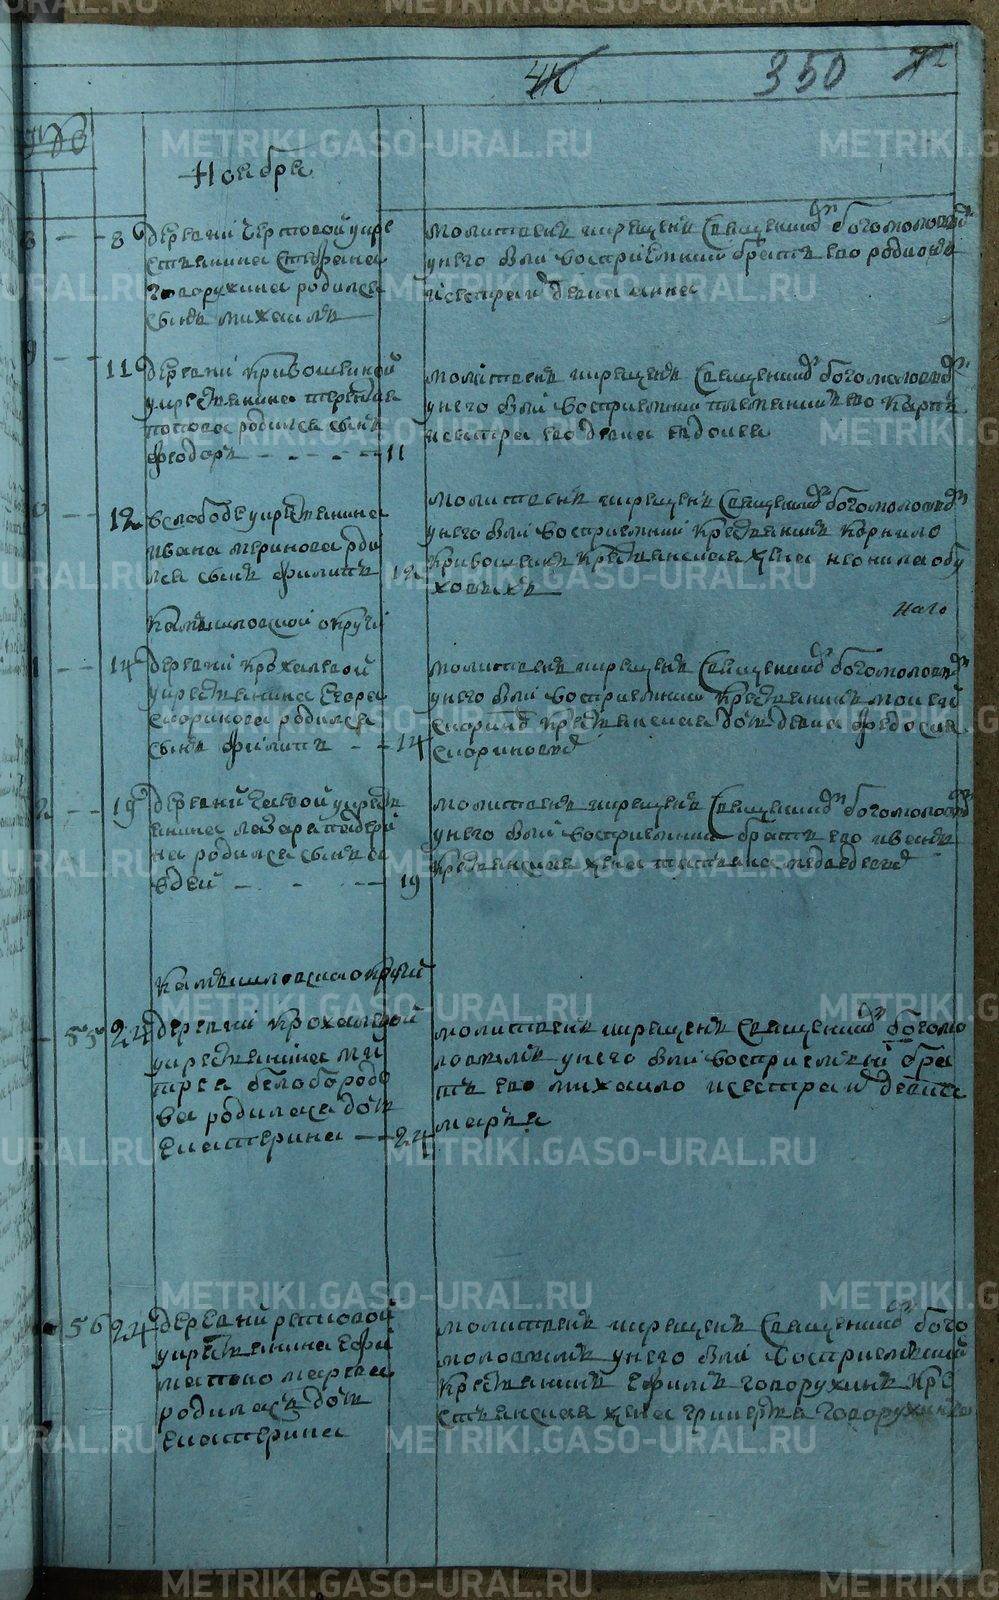 METRIKI.GASO-URAL.RU
350
Ноября
8 деревни Черновой у кре
стьянина Стефана
Говорухина родился
сынъ Михаилъ
молитвенъ и крещенъ священникомъ Богомоловымъ
у него были восприемники братъ ево родной
и сестра девица Анна
11 деревни Кривошеиной
у крестьянина
Попова родился сынъ
Феодоръ 11
молитвенъ и крещенъ священникомъ Богомоловымъ
у него были восприемники племянникъ ево Карпъ
и сестра ево девица Евдокея
12 в слободе у крестьянина
Ивана Меринова роди
лся сынъ Филипъ 12
молитвенъ и крещенъ священникомъ Богомоловымъ
у него были восприемники крестьянинъ Корнило
Кривошеинъ крестьянская жена Неонила Обу
ховыхъ
Камышловской округи
14 деревни Крохалевой
у крестьянина Егора
Скоринова родился
сынъ Филипъ 14
молитвенъ и крещенъ священникомъ Богомоловымъ
у него были восприемники крестьянинъ Моисей
Скоринъ крестьянская дочь девица Федосья
Скоринова
19 деревни у кресть
янина Лазаря
на родился сынъ А
вдей 19
молитвенъ и крещенъ священникомъ Богомоловымъ
у него были восприемники братъ ево Иванъ
крестьянская жена Татьяна Медведева
Камышловской округи
55 24 деревни Крохалевой
у крестьянина Ми
трея Белобородо
ва родилася дочь
Екатерина 24
молитвенъ и крещенъ священникомъ Богомо
ловымъ у него были восприемники бра
тъ ево Михайло и сестра девица
Марья
56 24 деревни
у крестьянина Ефи
ма Пономарева
родилась дочь
Екатерина
молитвенъ и крещенъ священникомъ Бого
моловымъ у него были восприемники
крестьянинъ Ефимъ Говорухинъ кре
стьянская жена Говорухина